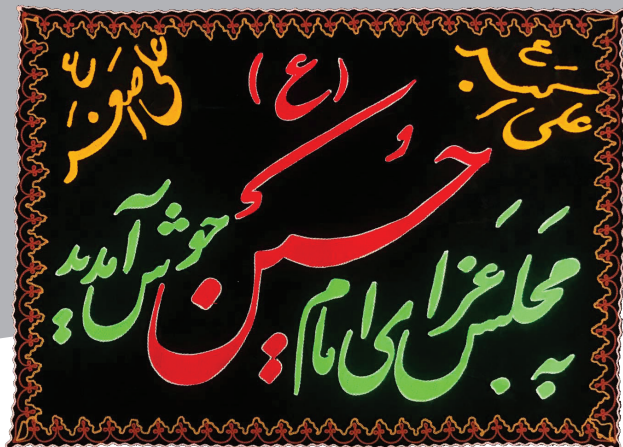 علی اکبر ع
علی اصغر ع
(ع)
به مجلس عزای امام حسین خوش آمدید